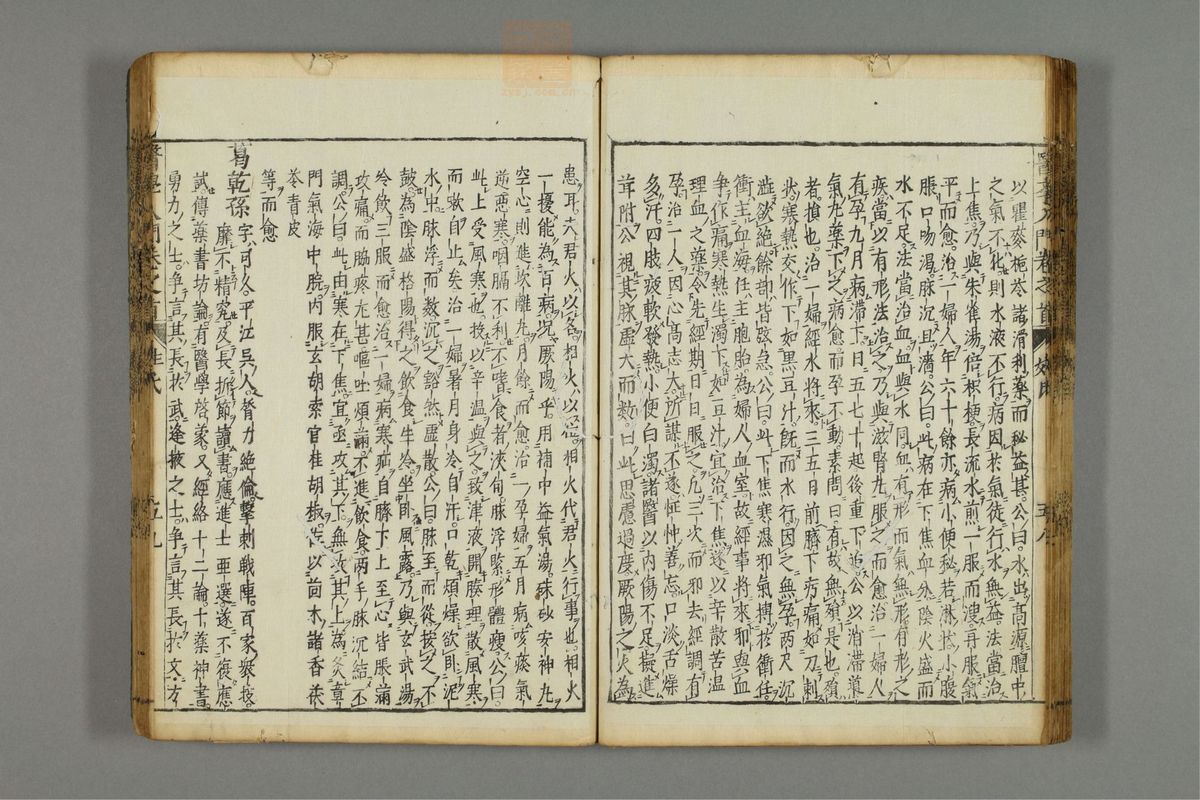 以瞿麥梔苓諸滑利藥而秘益甚公曰水出高源膻中
之氣不化則水液不行病因於氣徒行水無益法當治
上焦乃與朱雀湯倍桔梗長流水煎一服而溲再服氣
平而愈治一婦人年六十餘亦病小便秘若淋狀小腹
脹口吻渴脉沉且濇公曰此病在下焦血分陰火盛而
水不足法當治血血與水同血有形而氣無形有形之
疾當以有形法治之乃與滋腎丸服之而愈治一婦人
有孕九月病滯下日五七十起後重下迫公以消滯導
氣丸藥下之病愈而孕不動素問曰有故無殞是也殞
者損也治一婦經水將來三五日前臍下㽲痛如刀刺
狀寒熱交作下如黑豆汁旣而水行因之無孕兩尺沉
澁欲絕餘部皆弦急公曰此下焦寒濕邪氣搏於衝任
衝主血海任主胞胎為婦人血室故經事將來邪與血
爭作痛寒熱生濁下如豆汁宜治下焦遂以辛散苦温
理血之藥令先經期日日服之凡三次而邪去經調有
孕治一人因心高志大所謀不遂怔忡善忘口淡舌燥
多汗四肢疲軟發熱小便白濁諸醫以內傷不足擬進
茸附公視其脉虛大而數曰此思慮過度厥陽之火為
醫學入門卷之首 姓氏 五八
患耳夫君火以名相火以位相火代君火行事也相火
一擾能為百病况厥陽乎用補中益氣湯硃砂安神丸
空心則進坎離丸月餘而愈治一孕婦五月病咳痰氣
逆惡寒咽膈不利不嗜食者浹旬脉浮緊形體瘦公曰
此上受風寒也投以辛温與之致津液開腠理散風寒
而嗽自止矣治一婦暑月身冷自汗口乾煩燥欲臥泥
水中脉浮而數沉之豁然虛散公曰脉至而從按之不
鼓為陰盛格陽得之飲食生冷坐臥風露乃與玄武湯
冷飲三服而愈治一婦病寒疝自臍下上至心皆脹滿
攻痛而脇疼尤甚嘔吐煩滿不進飲食兩手脉沉結不
調公曰此由寒在下焦宜亟攻其下無攻其上為灸章
門氣海中脘內服玄胡索官桂胡椒佐以茴木諸香茯
苓青皮
等而愈
葛乾孫 字可久平江吳人膂力絕倫擊刺戰陣百家衆技
靡不精究及長折節讀書應進士亜選遂不復應
試傳藥書坊論有醫學啓蒙又經絡十二論十藥神書
勇力之士爭言其長於武逢掖之士爭言其長於文方
醫學入門卷之首 姓氏 五九